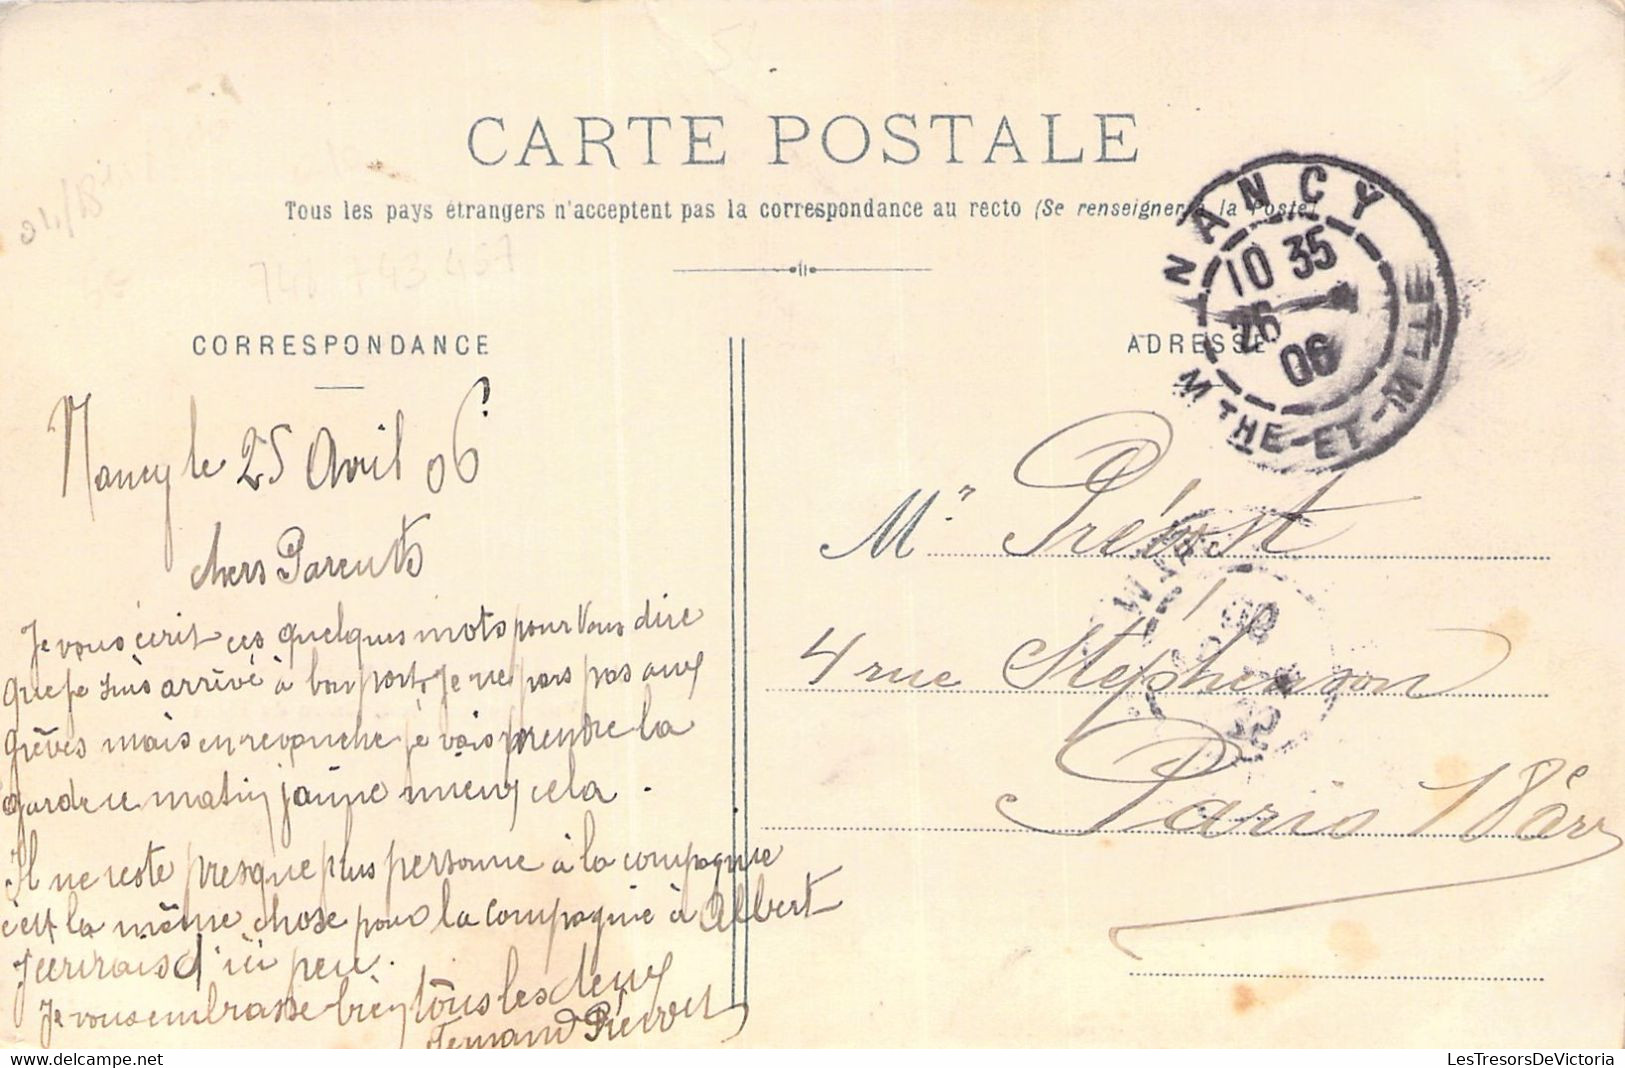 CARTE POSTALE
Tous les pays étrangers n'acceptent pas la correspondance au recto (Se renseigner à la Poste)
CORRESPONDANCE
ADRESSE
NANCY
10 35
26
06
MTHE-ET-MLLE
Nancy le 25 Avril 06
chers Parents
Je vous écrit ces quelques mots pour vous dire
que je suis arrivé à bon port, je ne pars pas aux
grêves mais en revanche je vais prendre la
garde ce matin j'aime mieux cela.
Il ne reste presque plus personne à la compagnie
c'est la même chose pour la compagnie à Albert
J'ecrirais d'ici peu.
Je vous embrasse bien tous les deux
Fernand Prévost
Mr. Prévost
4 rue Stephenson
Paris 18è arr
LesTresorsDeVictoria